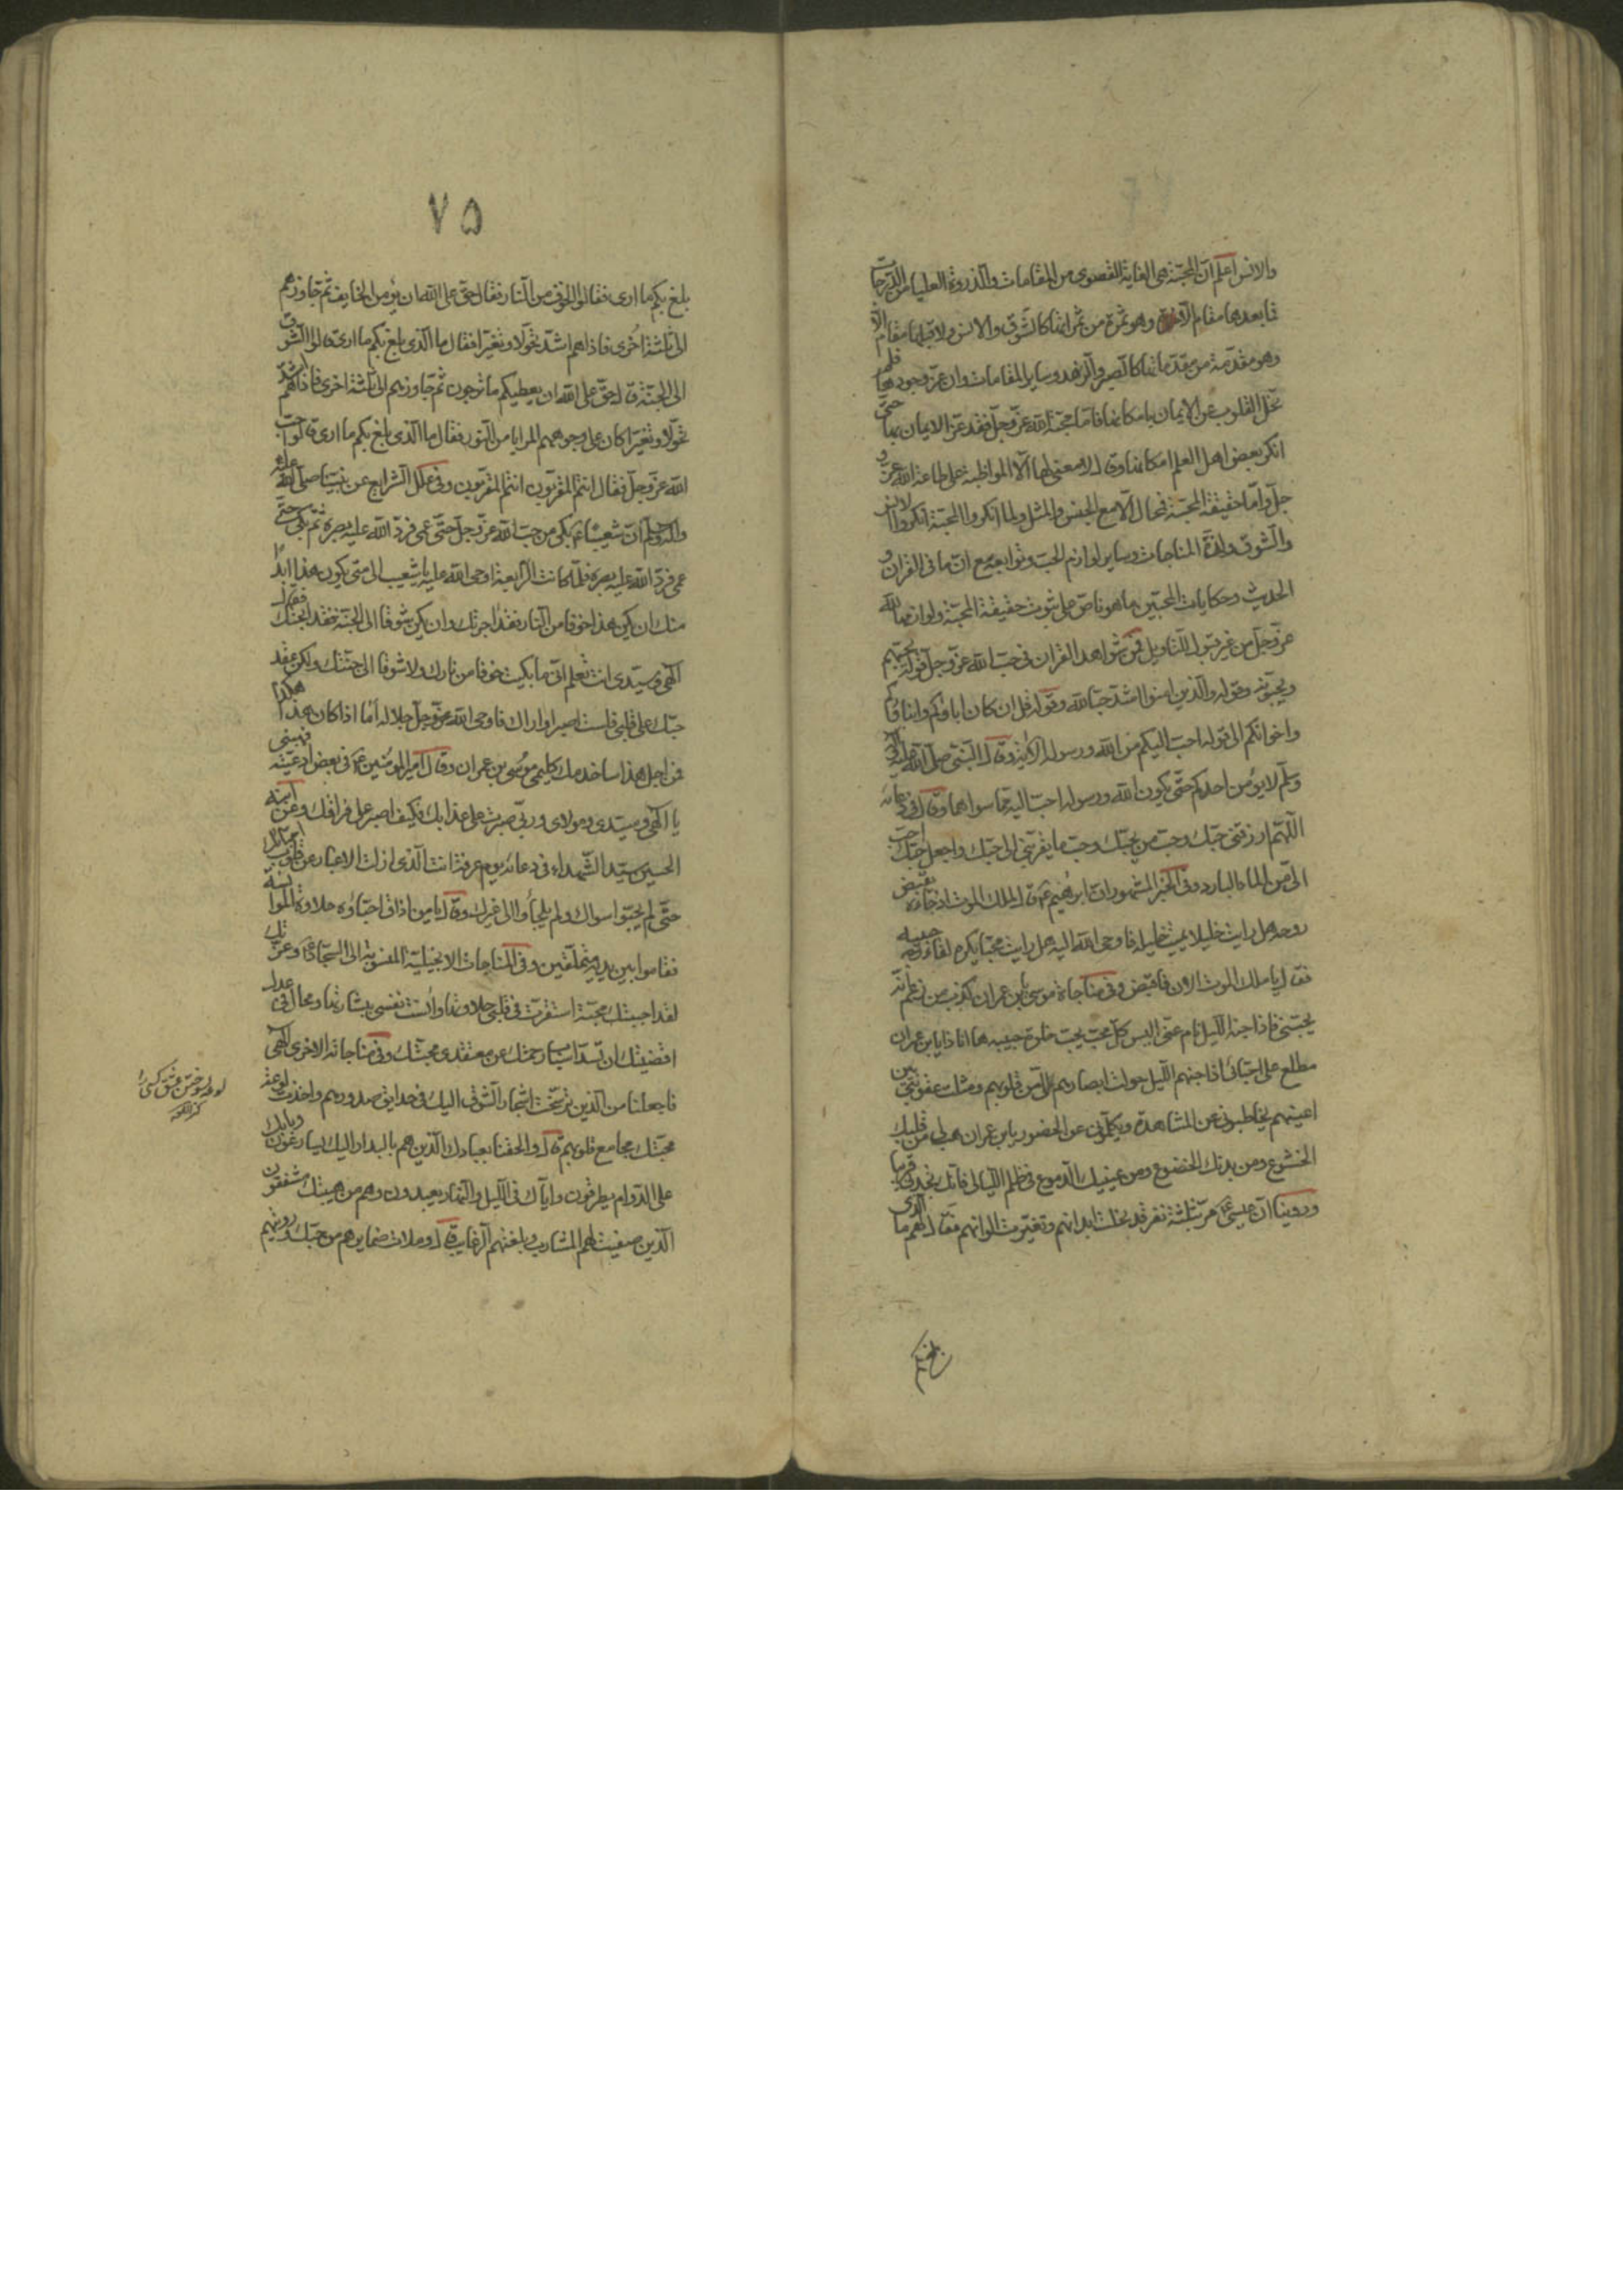 والانس اعلم ان المحبّة هی الغایة القصوی من المقامات والذروة العلیا من الدرجات
فما بعدها مقام الا وهو ثمرة من ثمراتها کالشوق والانس ولا قبلها مقام الّا
وهو مقدّمة من مقدّماتها کالصبر والزهد وسایر المقامات وان عزّ وجودها فلم
تخل القلوب عن الایمان بامکانها فامّا محبّة الله عزّ وجلّ فقد عزّ الایمان بها حتّی
انکر بعض اهل العلم امکانها وقال لا معنی لها الّا المواظبة علی طاعة الله عزّ و
جلّ وامّا حقیقة المحبّة فمحال الّا مع الجنس والمثل ولما انکروا المحبّة انکروا الانس
والشوق ولذّة المناجات وسایر لوازم الحبّ وتوابعه مع انّ ما فی القران و
الحدیث وحکایات المحبّین ما هو ناصّ علی ثبوت حقیقة المحبّة ولوازمها لله
عزّ وجلّ من غیر قبول التاویل فمن شواهد القران فی حبّ الله عزّ وجلّ قوله یحبّهم
ویحبّونه وقوله والذین امنوا اشدّ حبّا لله وقوله قل ان کان اباؤکم وابناؤکم
واخوانکم الی قوله احبّ الیکم من الله ورسوله الایة وقال النبی صلّی الله علیه واله
وسلّم لا یؤمن احدکم حتّی یکون الله ورسوله احبّ الیه ممّا سواهما وقال فی دعائه
اللّهمّ ارزقنی حبّک وحبّ من یحبّک وحبّ ما یقرّبنی الی حبّک واجعل حبّک احبّ
الیّ من الماء البارد وفی الخبر المشهور انّ ابرهیم ع قال لملک الموت اذ جاءه لقبض
روحه هل رایت خلیلا یمیت خلیله فاوحی الله الیه هل رایت محبّا یکره لقاء حبیبه
فقال یا ملک الموت الان فاقبض وفی مناجاة موسی یابن عمران کذب من زعم انّه
یحبّنی فاذا جنّه اللیل نام عنّی الیس کلّ محبّ یحبّ خلوة حبیبه ها انا ذا یابن عمران
مطلع علی احبّائی اذا جنّهم اللیل حولت ابصارهم الیّ من قلوبهم ومثلت عقوبتی بین
اعینهم یخاطبونی عن المشاهدة ویکلّمونی عن الحضور یابن عمران هب لی من قلبک
الخشوع ومن بدنک الخضوع ومن عینیک الدموع فی ظلم اللیالی فانّک تجدنی قریبا
وروینا انّ عیسی ع مرّ بثلثة نفر قد نحلت ابدانهم وتغیّرت الوانهم فقال لهم ما الّذی
۷۵
بلغ بکم ما اری فقالوا الخوف من النار فقال حقّ علی الله ان یؤمن الخایف ثم جاوزهم
الی ثلثة اُخری فاذا هم اشدّ نحولا وتغیّرا فقال ما الّذی بلغ بکم ما اری قالوا الشوق
الی الجنّة قال حقّ علی الله ان یعطیکم ما ترجون ثم جاوزهم الی ثلثة اخری فاذا هم اشدّ
نحولا وتغیّرا کان علی وجوههم المرایا من النور فقال ما الّذی بلغ بکم ما اری قالوا حبّ
الله عزّ وجلّ فقال انتم المقرّبون انتم المقرّبون وفی علل الشرایع عن نبیّنا صلّی الله علیه
واله وسلّم انّ شعیبا ع بکی من حبّ الله عزّ وجلّ حتّی عمی فردّ الله علیه بصره ثم بکی حتّی
عمی فردّ الله علیه بصره فلمّا کانت الرابعة اوحی الله الیه یا شعیب الی متی یکون هذا ابدًا
منک ان یکن هذا خوفا من النار فقد اجرتک وان یکن شوقا الی الجنّة فقد ابحتک فقال
الهی وسیّدی انت تعلم انّی ما بکیت خوفا من نارک ولا شوقا الی جنّتک ولکن عقد
حبّک علی قلبی فلست اصبر او اراک فاوحی الله عزّ وجلّ جلاله امّا اذا کان هذا هکذا
فمن اجل هذا ساخدمک کلیمی موسی بن عمران وقال امیر المؤمنین ع فی بعض ادعیته فهبنی
یا الهی وسیّدی ومولای وربّی صبرت علی عذابک فکیف اصبر علی فراقک وعن ابنه
الحسین سیّد الشّهداء فی دعائه یوم عرفة انت الّذی ازلت الاغیار عن قلوب احبّائک
حتّی لم یحبّوا سواک ولم یلجاؤا الی غیرک وقال یا من اذاق احبّاؤه حلاوة الموانسة
فقاموا بین یدیه متملّقین وفی المناجات الانجیلیة المنسوبة الی السجّاد ع وعزّتک
لقد احببتک محبّة استقرّت فی قلبی حلاوتها وانست نفسی ببشارتها ومحال فی عدل
اقضیتک ان تسدّ اسباب رحمتک عن معتقدی محبّتک وفی مناجاته الاخری الهی
فاجعلنا من الّذین ترسّخت اشجار الشوق الیک فی حدایق صدورهم واخذت لوعة
محبّتک بمجامع قلوبهم قال والحقنا بعبادک الّذین هم بالبدار الیک یسارعون وبابک
علی الدوام یطرقون وایّاک فی اللیل والنهار یعبدون وهم من هیبتک مشفقون
الّذین صفیت لهم المشارب وبلغتهم الرغایب قال وملات ضمایرهم من حبّک ورویتهم
لوعه سوختن عشق کسی را
کنز اللغه